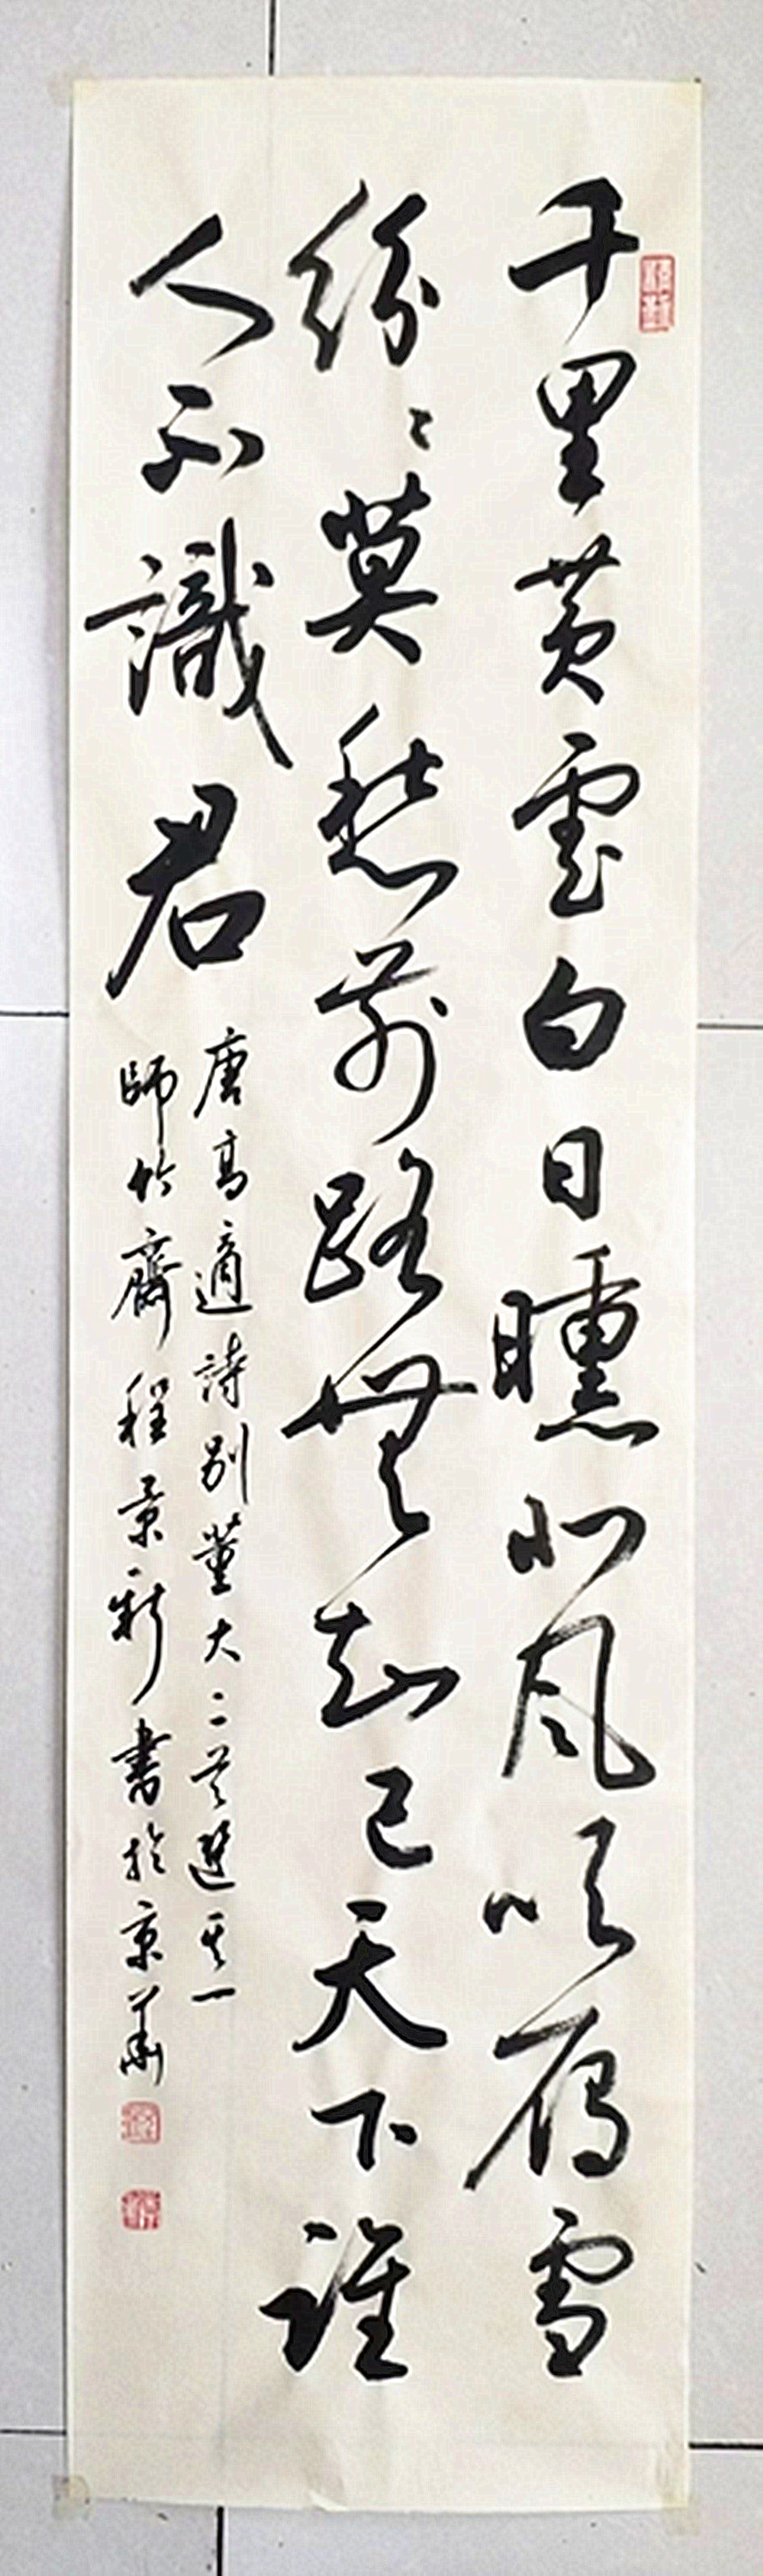 千里黃雲白日曛北風吹雁雪
紛〻莫愁前路無知己天下誰
人不識君
唐高適詩別董大二首選其一
師竹齋程景新書於京華